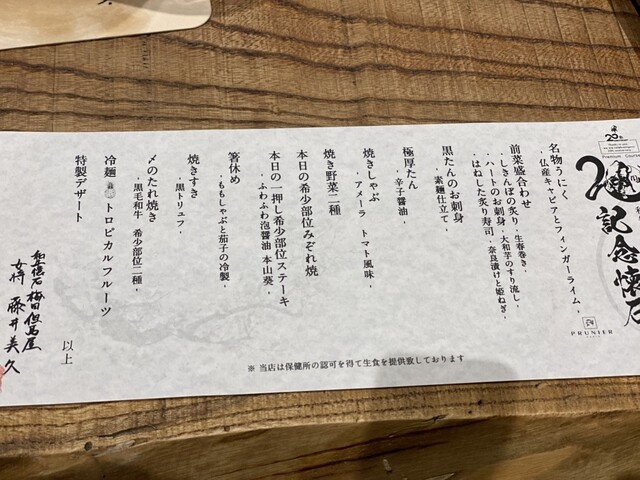 20th
Premium Course
20th
記念懐石
PRUNIER
名物うにく
・仏産キャビアとフィンガーライム・
前菜盛合わせ
・しきんぼの炙り・生春巻き・
・ハートのお刺身・大和芋のすり流し・
・はねした炙り寿司・奈良漬けと姫ねぎ・
黒たんのお刺身
・素麺仕立て・
極厚たん
・辛子醤油・
焼きしゃぶ
・アメーラ トマト風味・
焼き野菜二種
本日の希少部位みぞれ焼
本日の一押し希少部位ステーキ
・ふわふわ泡醤油 本山葵・
箸休め
・ももしゃぶと茄子の冷製・
焼きすき
・黒トリュフ・
〆のたれ焼き
・黒毛和牛 希少部位二種・
冷麺 トロピカルフルーツ
特製デザート
以上
女将 藤井美久
※ 当店は保健所の認可を得て生食を提供致しております